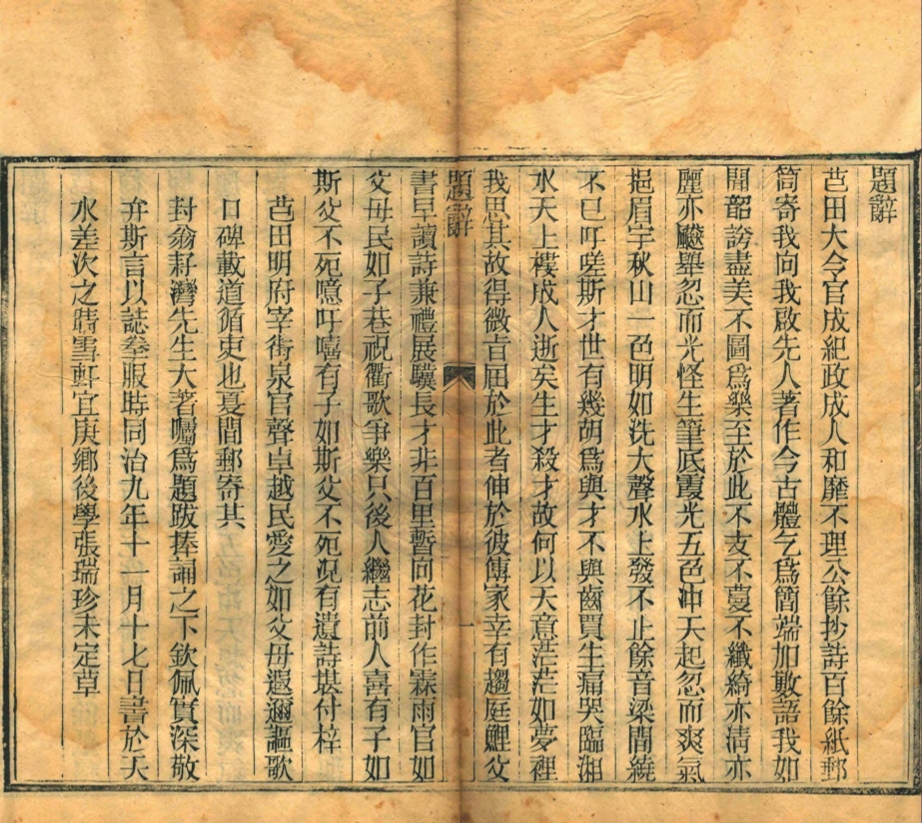 題辭
芭田大令官成紀政成人和靡不理公餘抄詩百餘紙郵
筒寄我向我啟先人著作今古體乞爲簡端加數語我如
聞韶謗盡美不圖爲樂至於此不支不蔓不纖綺亦淸亦
麗亦颷舉忽而光怪生筆底霞光五色冲天起忽而爽氣
挹眉宇秋山一色明如洗大聲水上發不止餘音梁間繞
不已吁嗟斯才世有幾胡爲與才不與齒賈生痛哭臨湘
水天上樓成人逝矣生才殺才故何以天意茫茫如夢裡
我思其故得微旨屈於此者伸於彼傳家幸有趨庭鯉父
題辭
一
書早讀詩兼禮展驥長才非百里暫向花封作霖雨官如
父母民如子巷祝衢歌爭樂只後人繼志前人喜有子如
斯父不死噫吁嘻有子如斯父不死況有遺詩堪付梓
芭田明府宰街泉官聲卓越民愛之如父母遐邇謳歌
口碑載道循吏也夏間郵寄其
封翁耔灣先生大著囑爲題跋捧誦之下欽佩實深敬
弁斯言以誌拳服時同治九年十一月十七日書於天
水差次之晴雪軒宜庚鄉後學張瑞珍未定草